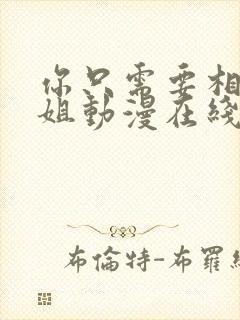 你只需要相
姐動漫在綫
布倫特-布羅